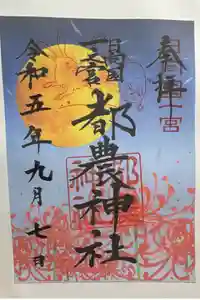 奉拝
日向国
一之宮
都農神社
令和五年九月七日